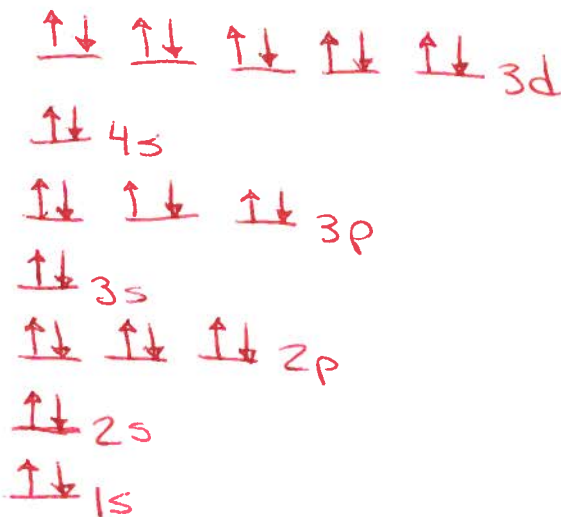 3d
4s
3p
3s
2p
2s
1s